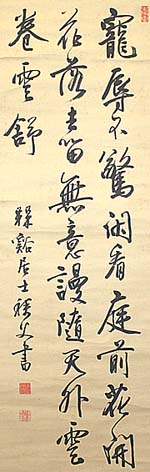 寵辱不驚閑看庭前花開
花落去留無意謾隨天外雲
卷雲舒
谿居士 父書